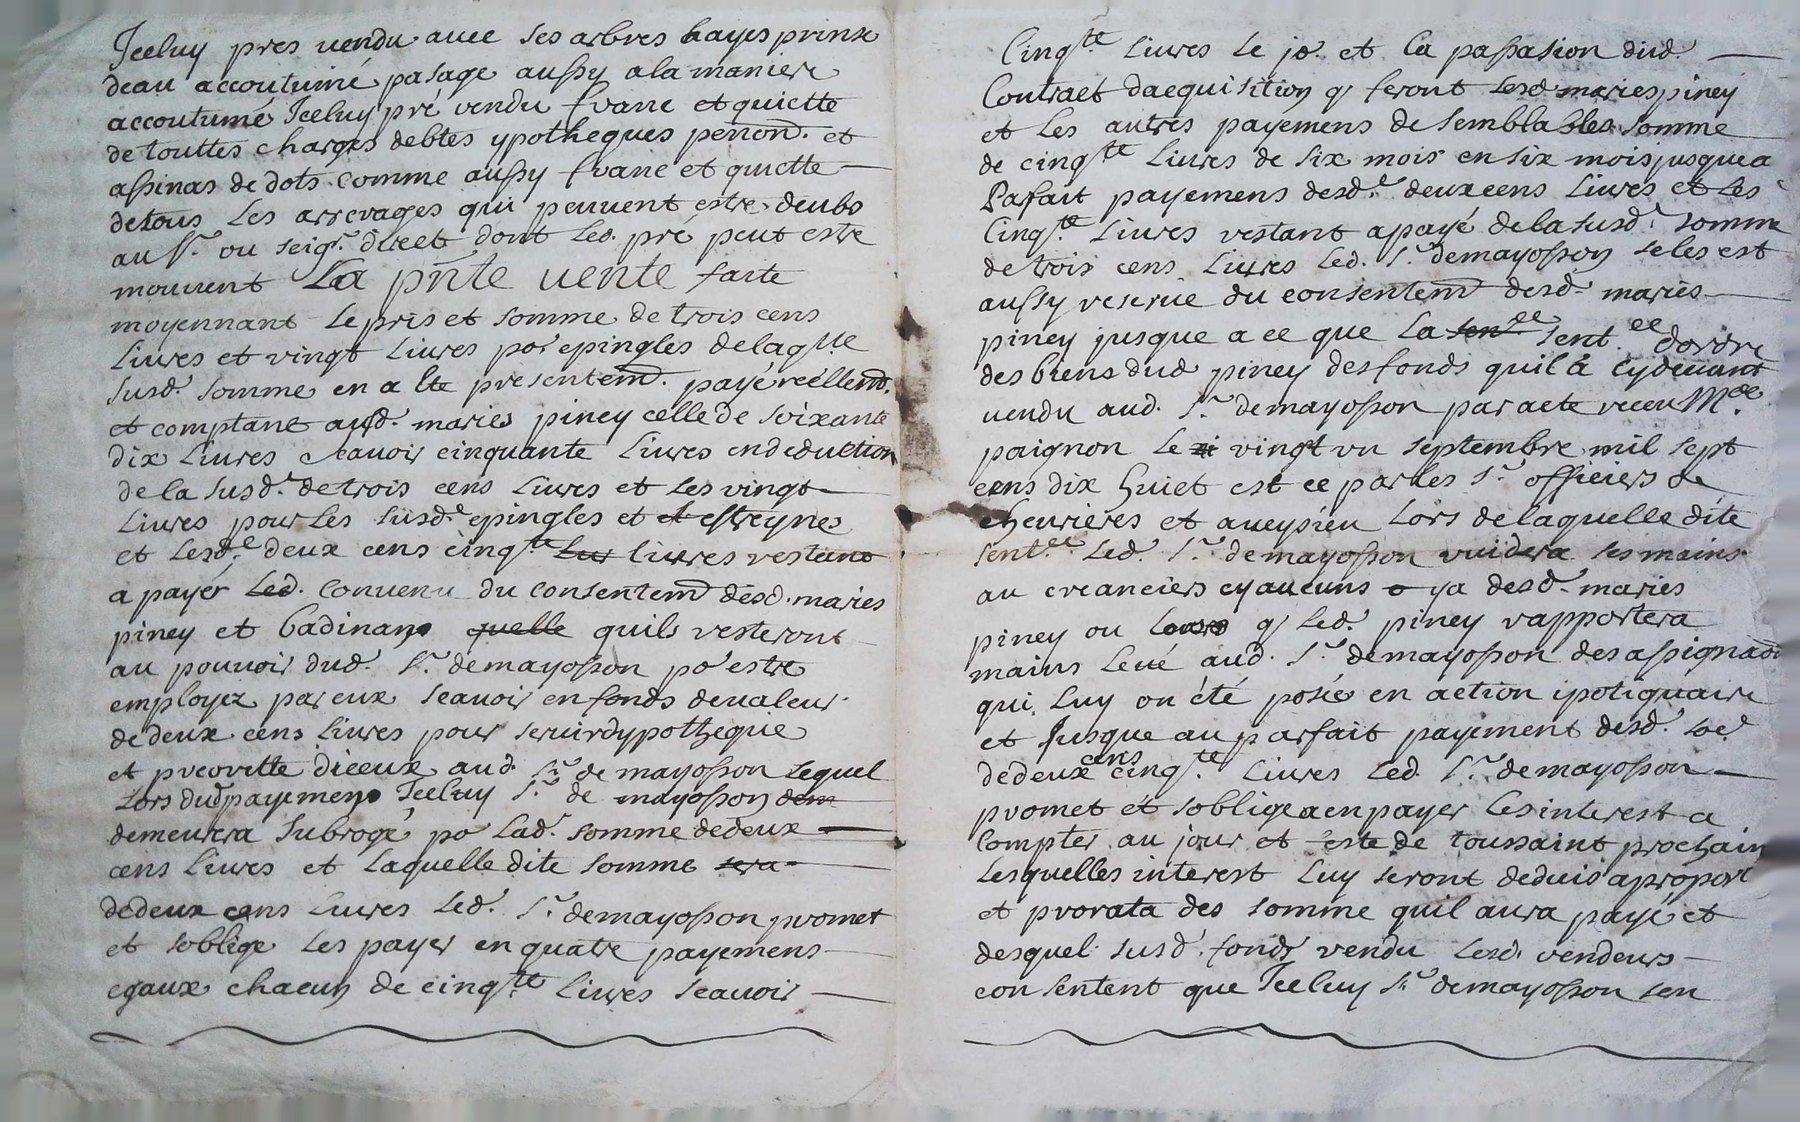 Iceluy pres vendu avec ses arbres hayes prinse
deau accoutumé pasage aussy a la maniere
accoutumé Iceluy pré vendu franc et quiette
de touttes charges debtes ypotheques penon.d et
assinas de dots comme aussy franc et quiette
de tous les arrerages qui peuvent estre deubs
au Sr. ou seigr. direct dont led. pré peut estre
mouvent La pn̄te vente faite
moyennant le pris et somme de trois cens
livres et vingt livres por epingles de laqtte
susd. somme en a lte presentemd. payé réellemd.
et comptant ausd. maries piney celle de soixante
dix livres scavoir cinquante livres en deduction
de la susd. de trois cens livres et les vingt
livres pour les susd.e epingles et et estreynes
et lesd.e deux cens cinqte livres restant
a payér led. convenu du consentemd desd. maries
piney et Cadinan quelle quils resteront
au pouvoir dud. Sr. demayosson po estre
employez par eux scavoir en fonds de valeur
de deux cens livres pour servir dypotheque
et preoritte diceux aud. Sr. de mayosson lequel
Lors dud payemen Iceluy Sr. de mayosson dem
demeurera subrogé po lad. somme de deux
cens livres et laquelle dite somme sera
de deux cens livres led. Sr. demayosson promet
et soblige les payer en quatre payemens
egaux chacun de cinqte livres scavoir
Cinqte livres le jo. et la passasion dud.
Contract dacquisition q feront lesd maries piney
et les autres payemens de semblables somme
de cinqte livres de six mois en six mois jusque a
Pafait payemens desd.e deux cens livres et les
Cinqte livres restant a payé de la susd. somme
de trois cens livres led. Sr. demayosson se les est
aussy reservé du consentemd desd. maries
piney jusque a ce que la sence sent.ce dordre
des biens dud piney des fonds quil à cydevant
vendu aud. Sr. demayosson par acte receu Me.
paignon le vingt un septembre mil sept
cens dix huiet est ce par les Sr. officiers de
cheurieres et aveysieu lors de laquelle dite
sent.ce led. Sr. demayosson vuidera ses mains
au creanciers cy aucuns y a desd. maries
piney ou q led. piney rapportera
mains levé aud. Sr. demayosson des assignad
qui luy on été posée en action ipotiquaire
et Jusque au parfait payement desd. soe
de deux cens cinqte livres led. Sr. demayosson
promet et soblige a en payer les interest a
Compter au jour et feste de toussaint prochain
Lesquelles interest luy seront deduis a proport
et prorata des somme quil aura payé et
desquel susd. fonds vendu lesd. vendeurs
consentent que Iceluy Sr. demayosson sen